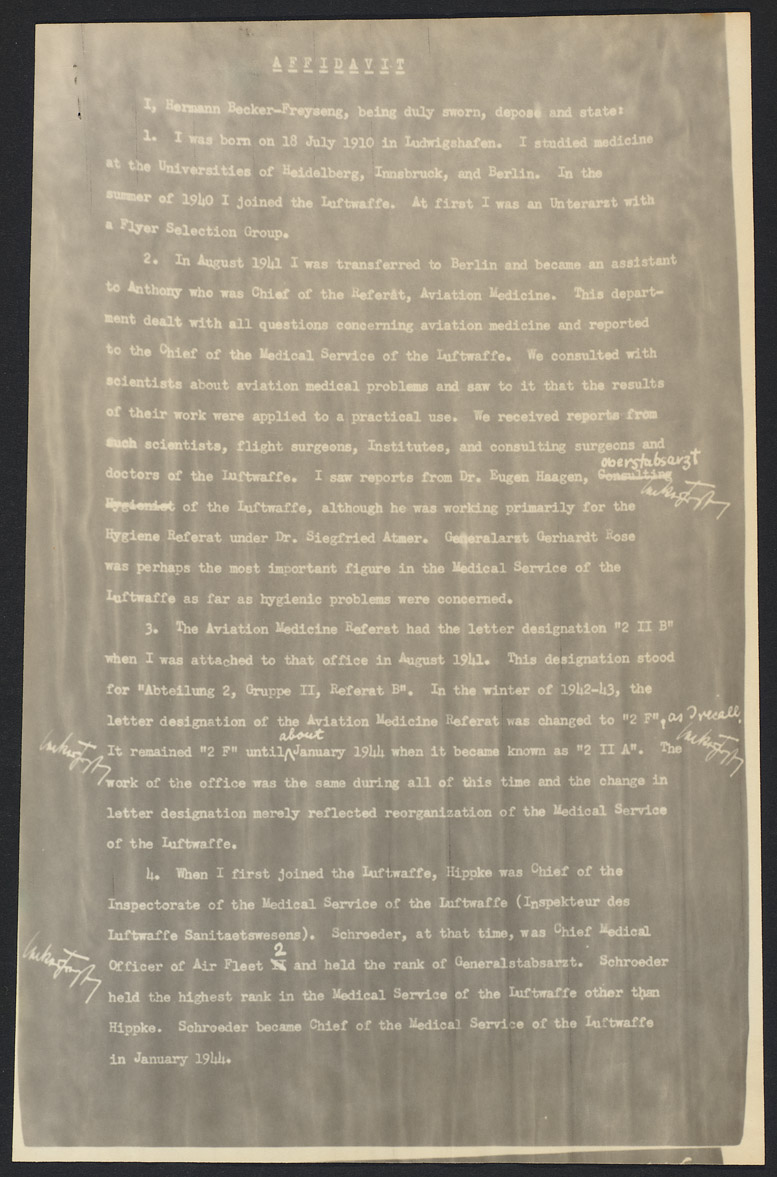 AFFIDAVIT
I, Hermann Becker-Freyseng, being duly sworn, depose and state:
1. I was born on 18 July 1910 in Ludwigshafen. I studied medicine
at the Universities of Heidelberg, Innsbruck, and Berlin. In the
summer of 1940 I joined the Luftwaffe. At first I was an Unterarzt with
a Flyer Selection Group.
2. In August 1941 I was transferred to Berlin and became an assistant
to Anthony who was Chief of the Referat, Aviation Medicine. This depart-
ment dealt with all questions concerning aviation medicine and reported
to the Chief of the Medical Service of the Luftwaffe. We consulted with
scientists about aviation medical problems and saw to it that the results
of their work were applied to a practical use. We received reports from
such scientists, flight surgeons, Institutes, and consulting surgeons and
oberstabsarzt
doctors of the Luftwaffe. I saw reports from Dr. Eugen Haagen, Consulting
Hygienist of the Luftwaffe, although he was working primarily for the
Hygiene Referat under Dr. Siegfried Atmer. Generalarzt Gerhardt Rose
was perhaps the most important figure in the Medical Service of the
Luftwaffe as far as hygienic problems were concerned.
3. The Aviation Medicine Referat had the letter designation "2 II B"
when I was attached to that office in August 1941. This designation stood
for "Abteilung 2, Gruppe II, Referat B". In the winter of 1942-43, the
letter designation of the Aviation Medicine Referat was changed to "2 F", as I recall.
about
It remained "2 F" until January 1944 when it became known as "2 II A". The
work of the office was the same during all of this time and the change in
letter designation merely reflected reorganization of the Medical Service
of the Luftwaffe.
4. When I first joined the Luftwaffe, Hippke was Chief of the
Inspectorate of the Medical Service of the Luftwaffe (Inspekteur des
Luftwaffe Sanitaetswesens). Schroeder, at that time, was Chief Medical
2
Officer of Air Fleet II and held the rank of Generalstabsarzt. Schroeder
held the highest rank in the Medical Service of the Luftwaffe other than
Hippke. Schroeder became Chief of the Medical Service of the Luftwaffe
in January 1944.